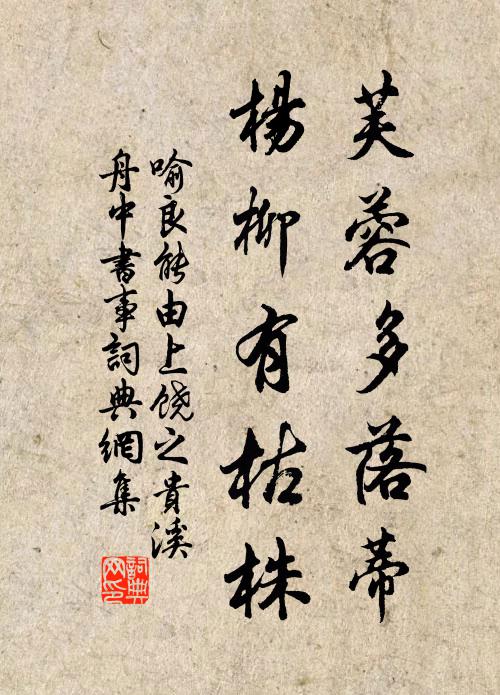 芙蓉多落蒂
楊柳有枯株
喻良能由上饒之貴溪
舟中書事詞典網集
詞典
网印